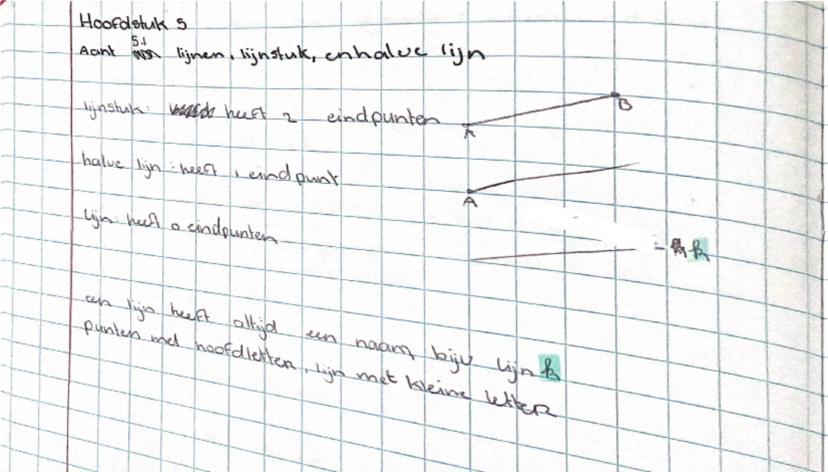 Hoofdstuk 5
Aant 5.1 lijnen, lijnstuk, en halve lijn
lijnstuk: heeft 2 eindpunten
A B
halve lijn: heeft 1 eindpunt
A
lijn: heeft 0 eindpunten
k
een lijn heeft altijd een naam, bijv lijn k
punten met hoofdletters, lijn met kleine letter